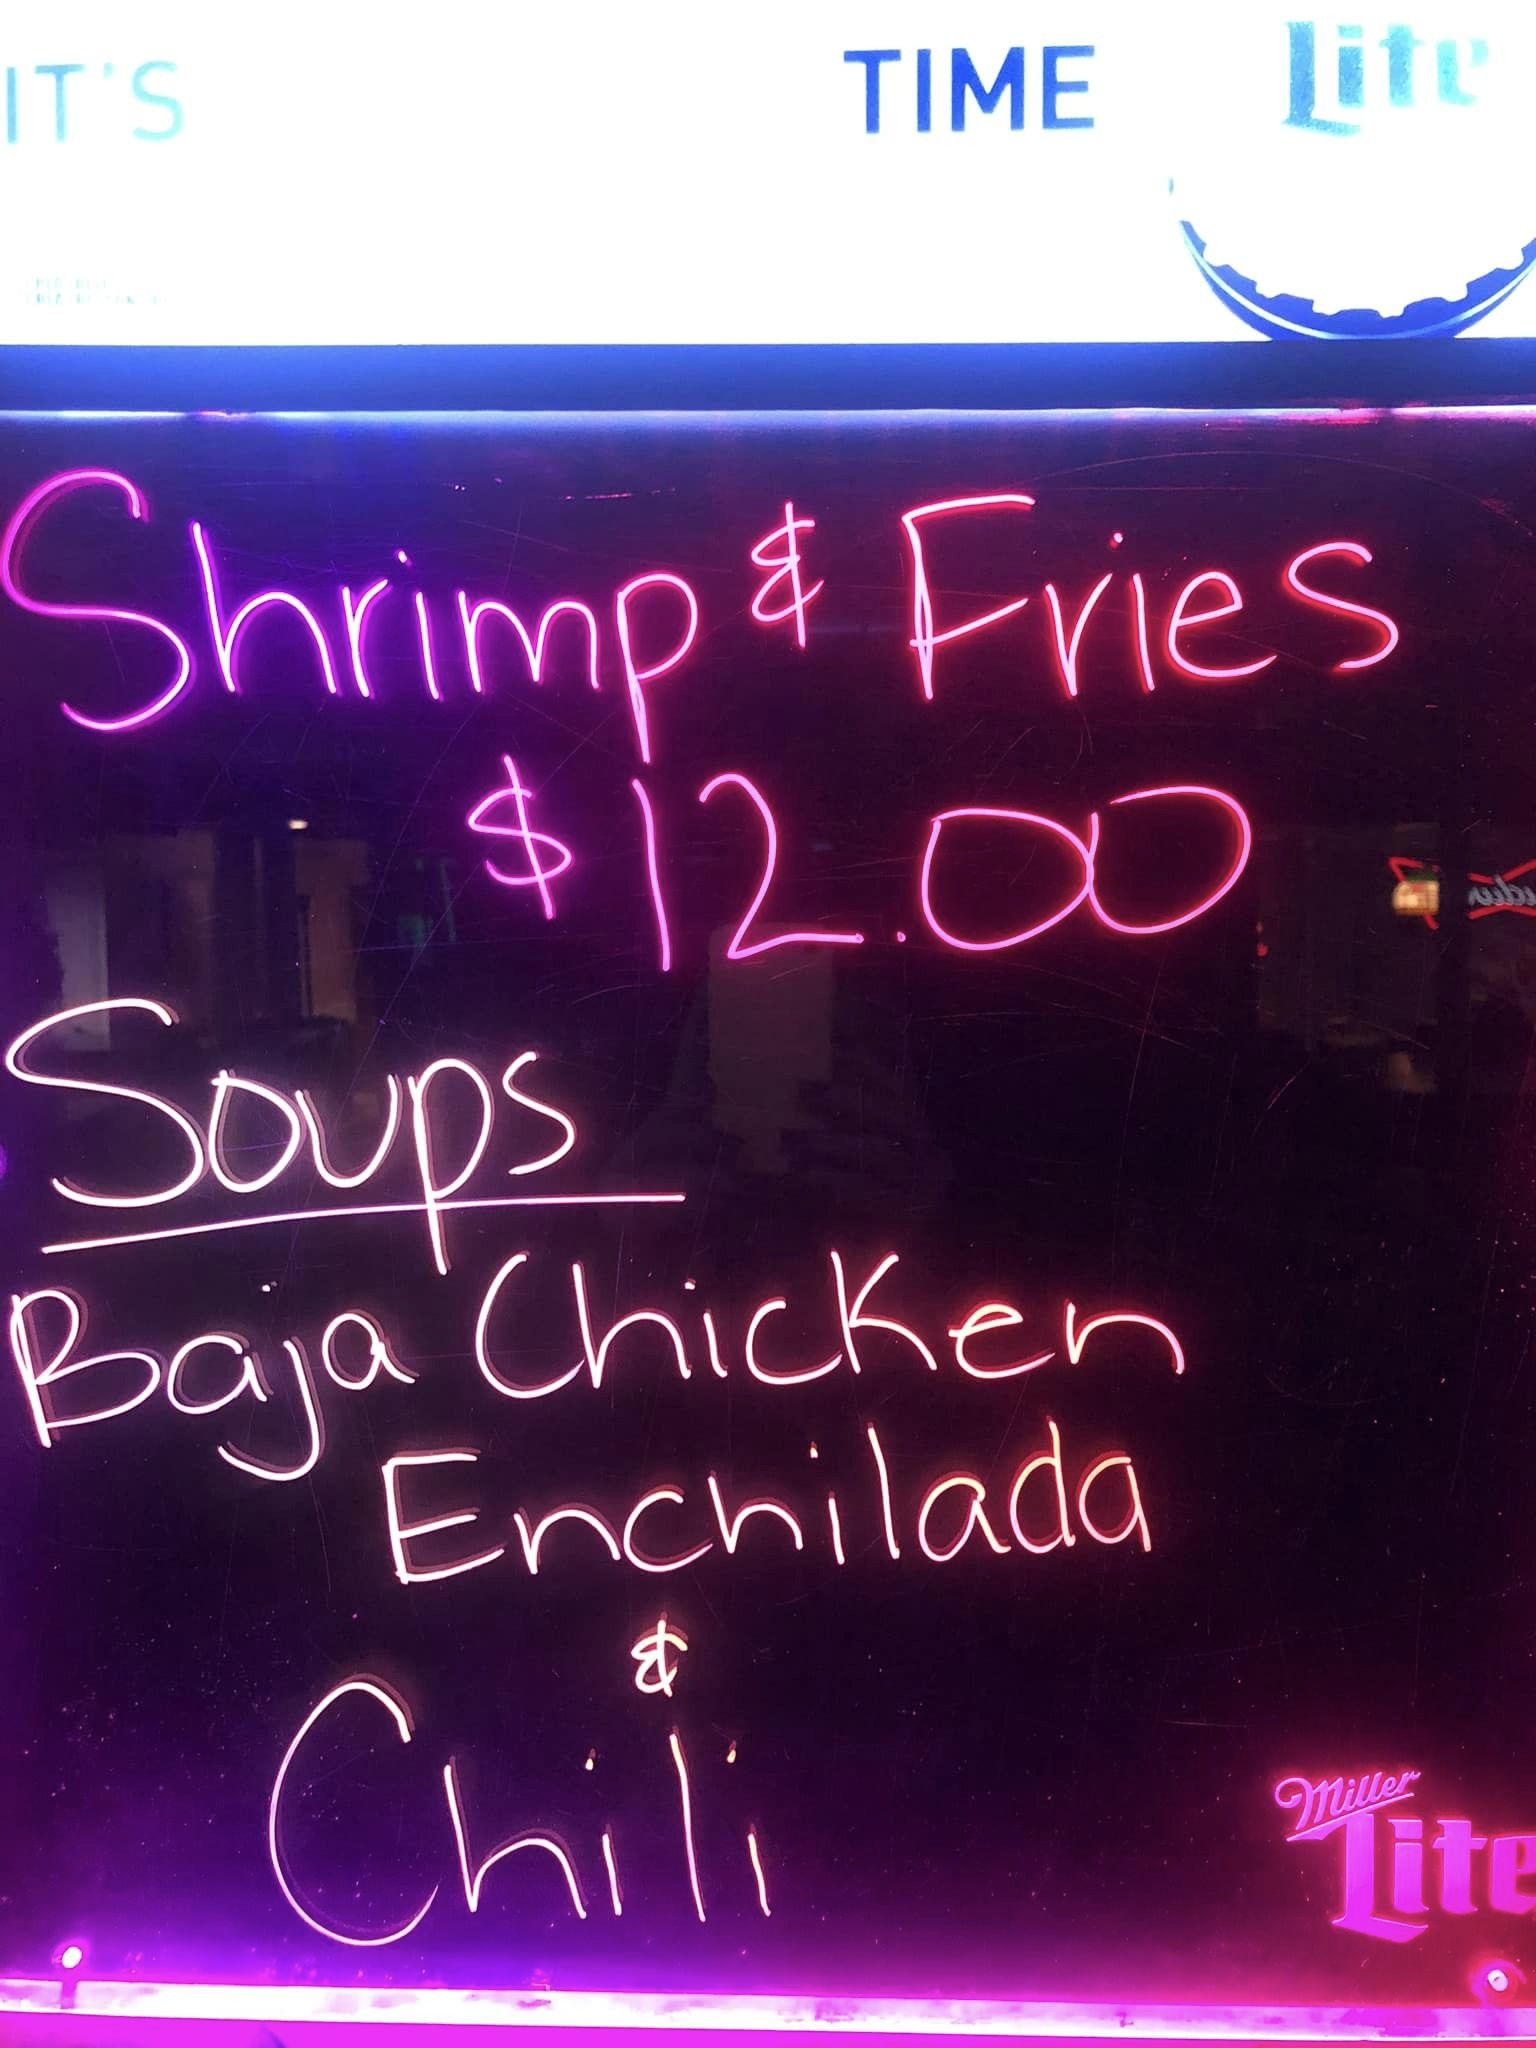 IT'S TIME Lite
Shrimp & Fries
$12.00
Soups
Baja Chicken
Enchilada
&
Chili
Miller
Lite